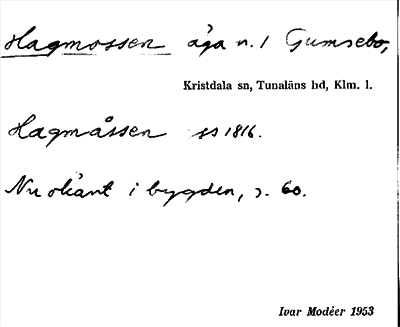 Hagmossen äga n. 1 Gumsebo,
Kristdala sn, Tunaläns hd, Klm. l.
Hagmåssen ss 1816.
Nu okänt i bygden, s. 60.
Ivar Modéer 1953